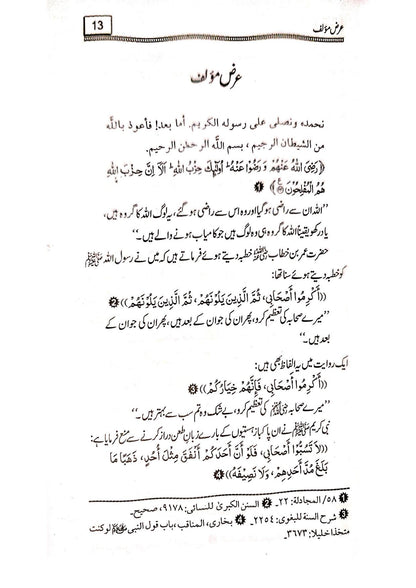 عرض مؤلف
13
عرض مؤلف
نحمده ونصلى على رسوله الكريم. أما بعد! فأعوذ بالله
من الشيطان الرجيم، بسم الله الرحمن الرحيم.
﴿رَضِیَ اللّٰهُ عَنْهُمْ وَ رَضُوْا عَنْهُ ؕ اُولٰٓىِٕكَ حِزْبُ اللّٰهِ ؕ اَلَاۤ اِنَّ حِزْبَ اللّٰهِ
هُمُ الْمُفْلِحُوْنَ﴾ ❶
”اللہ ان سے راضی ہوگیا اور وہ اس سے راضی ہوگئے، یہ لوگ اللہ کا گروہ ہیں،
یاد رکھو یقیناً اللہ کا گروہ ہی وہ لوگ ہیں جو کامیاب ہونے والے ہیں۔“
حضرت عمر بن خطاب رضی اللہ عنہ خطبہ دیتے ہوئے فرماتے ہیں کہ میں نے رسول اللہ ﷺ
کو خطبہ دیتے ہوئے سنا تھا:
((أَكْرِمُوا أَصْحَابِي، ثُمَّ الَّذِينَ يَلُونَهُمْ، ثُمَّ الَّذِينَ يَلُونَهُمْ)) ❷
”میرے صحابہ کی تعظیم کرو، پھر ان کی جو ان کے بعد ہیں، پھر ان کی جو ان کے
بعد ہیں۔“
ایک روایت میں یہ الفاظ بھی ہیں:
((أَكْرِمُوا أَصْحَابِي، فَإِنَّهُمْ خِيَارُكُمْ)) ❸
”میرے صحابہ کی تعظیم کرو، بے شک وہ تم سب سے بہتر ہیں۔“
نبی کریم ﷺ نے ان پاکباز ہستیوں کے بارے زبان طعن دراز کرنے سے منع فرمایا ہے:
((لَا تَسُبُّوا أَصْحَابِي، فَلَوْ أَنَّ أَحَدَكُمْ أَنْفَقَ مِثْلَ أُحُدٍ، ذَهَبًا مَا
بَلَغَ مُدَّ أَحَدِهِمْ، وَلَا نَصِيفَهُ)) ❹
❶ ٥٨/ المجادلة: ٢٢۔ ❷ السنن الكبرىٰ للنسائى: ٩١٧٨، صحيح۔
❸ شرح السنة للبغوى: ٢٢٥٤۔ ❹ بخارى، المناقب، باب قول النبى ﷺ لو كنت
متخذا خليلا: ٣٦٧٣۔